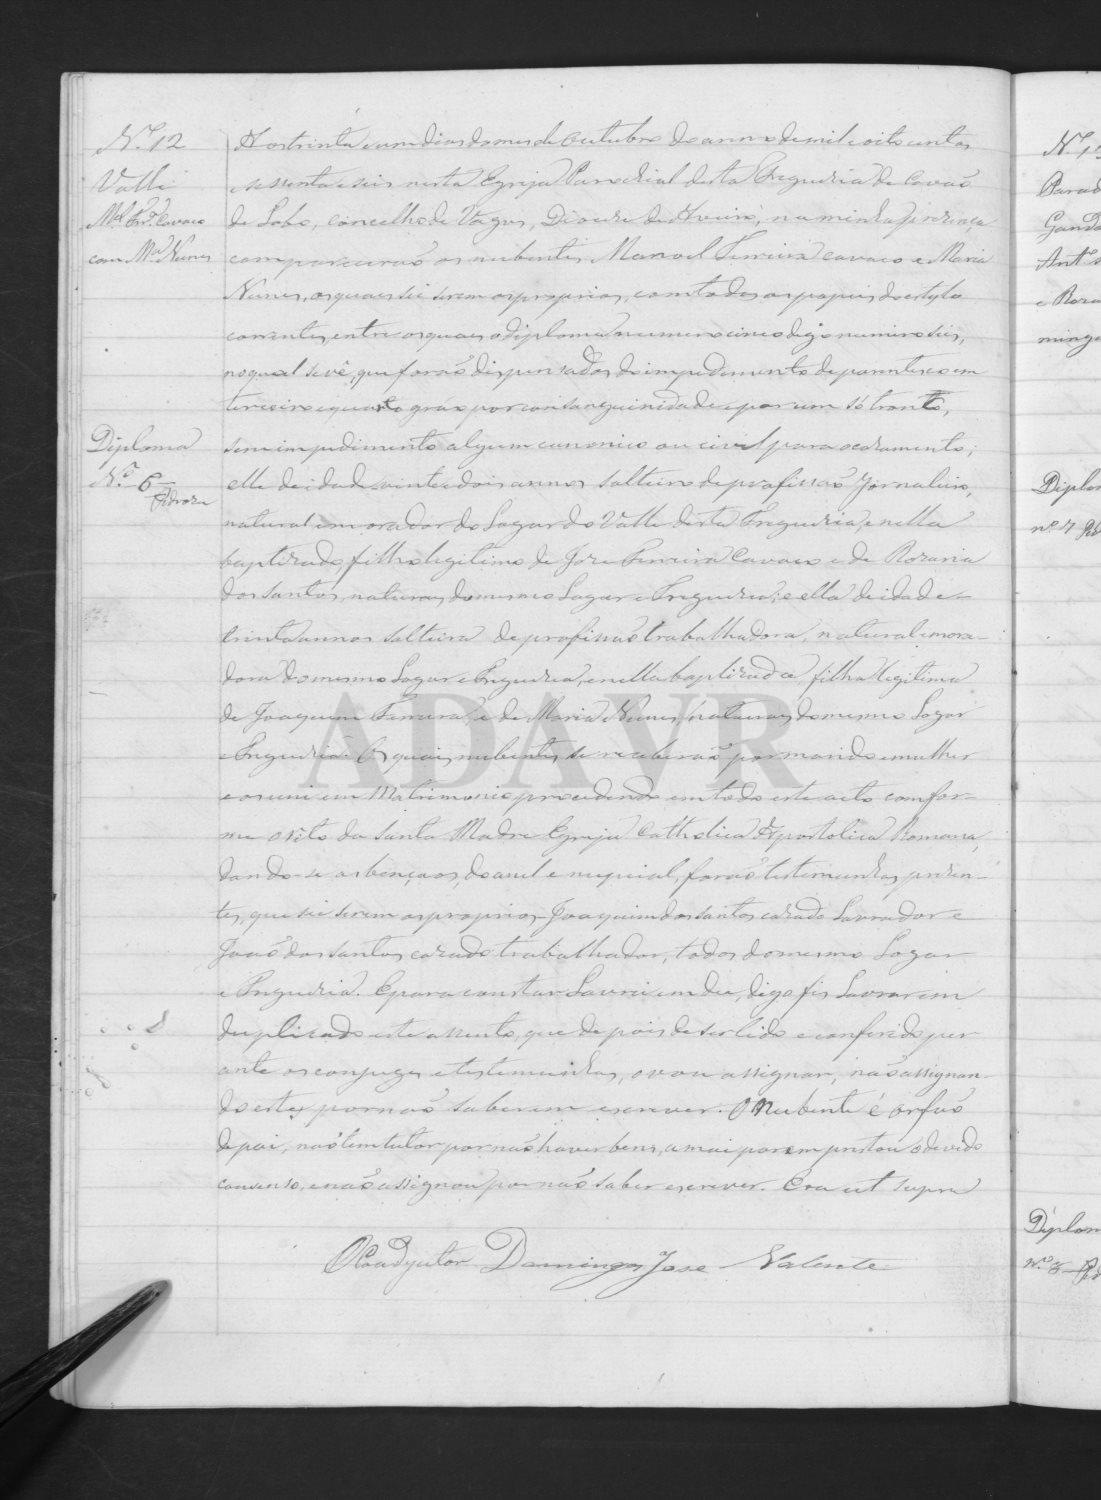 N.º 12
Valle
M.el Frr.ª Cavaco
com M.ª Nunes
Diploma
N.º 6
Aos trinta e um dias do mes de Outubro do anno de mil e oito centos
e sessenta e seis nesta Egreja Parochial desta Freguezia de Covaõ
do Lobo, concelho de Vagos, Diocese de Aveiro, na minha prezença
comparecerão os nubentes Manoel Ferreira cavaco e Maria
Nunes, os quaes sei serem os proprios, com todos os papeis do estylo
correntes, entre os quaes o diploma numero cinco digo numero seis,
no qual se vê, que foraõ dispensados do impedimento de parentesco em
terceiro e quarto gráo por consanguinidade e por um só tronco,
sem impedimento algum canonico ou civil para o casamento;
elle de idade vinte e dois annos solteiro de profissaõ Jornaleiro,
natural e morador do Lugar do Valle desta Freguezia, e nella
baptizado, filho legitimo de Joze Ferreira Cavaco e de Rozaria
dos Santos, naturaes do mesmo Lugar e Freguezia; e ella de idade
trinta annos solteira de profissaõ trabalhadora, natural e mora-
dora do mesmo Lugar e Freguezia, e nella baptizada filha legitima
de Joaquim Ferreira, e de Maria Nunes, naturaes do mesmo Lugar
e Freguezia. Os quaes nubentes se receberaõ por marido e mulher
e os uni em Matrimonio procedendo em todo este acto confor-
me o rito da Santa Madre Egreja Catholica Apostolica Romana,
dando-se as bençaos, do anel e nupcial, foraõ testemunhas prezen-
tes, que sei serem os proprios Joaquim dos Santos cazado Lavrador e
Joaõ dos Santos cazado trabalhador, todos do mesmo Lugar
e Freguezia. E para constar Lavrei em du, digo fis Lavrar em
duplicado este assento, que depois de ser lido e conferido per
ante os conjuges e testemunhas, o vou assignar, naõ assignan-
do estes por naõ saberem escrever. O Nubente é orfaõ
de pai, naõ tem tutor por naõ haver bens, a mai porem prestou o devido
consenso, e naõ assignou por naõ saber escrever. Era ut supra
O Coadjutor Domingos Jose Valente
ADAVR
Diplom